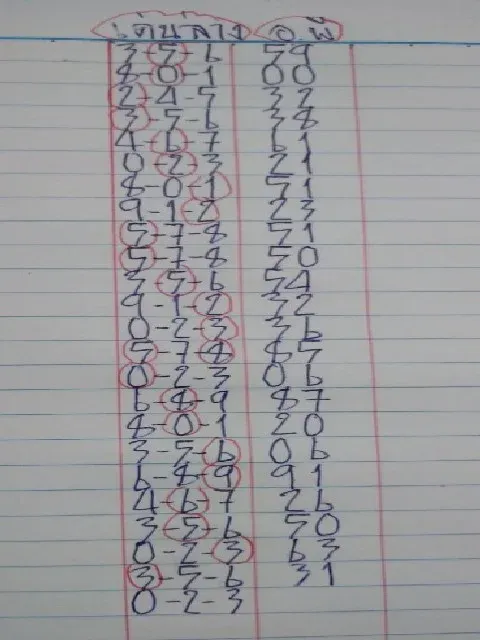 3-5-6 59
8-0-1 00
2-4-5 32
3-5-6 38
4-6-7 61
0-2-3 21
8-0-1 51
9-1-2 23
5-7-8 51
5-7-8 50
3-5-6 54
9-1-2 32
0-2-3 36
5-7-8 85
0-2-3 06
6-8-9 87
8-0-1 20
3-5-6 06
6-8-9 91
4-6-7 26
3-5-6 50
0-2-3 63
3-5-6 31
0-2-3